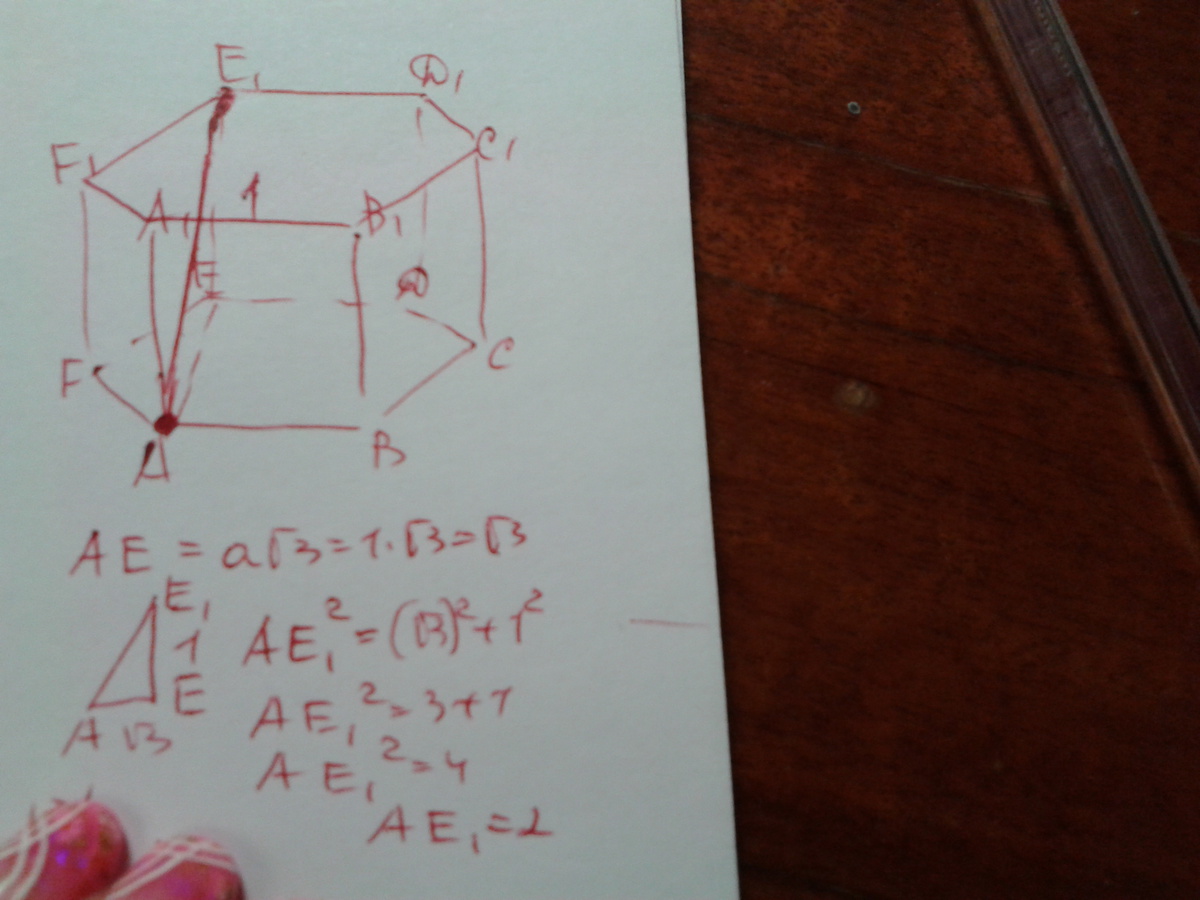 E₁ D₁
F₁ C₁
A₁ 1 B₁
E D
F C
A B
AE = a√3 = 1·√3 = √3
E₁
1 AE₁² = (√3)² + 1²
E
A √3 AE₁² = 3 + 1
AE₁² = 4
AE₁ = 2